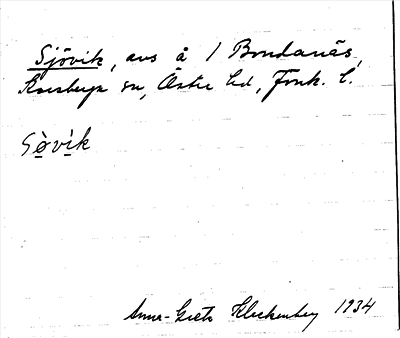 Sjövik, avs å 1 Bondanäs,
Korsberga sn, Östra hd, Jönk. l.
Sö̀vi̱k
Anna-Greta Kluckenberg 1934